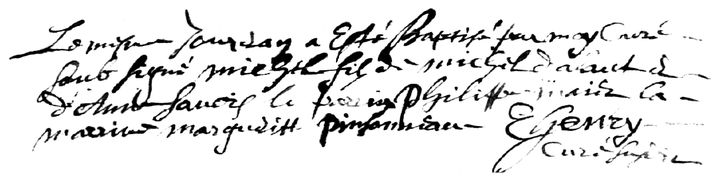 Le mesme jour et an a esté Baptisé par moy Curé
soub signé michel fils de michel
d'Anne le parin Philippe la
marrine margueritt pinsonneau EGenry
Curé